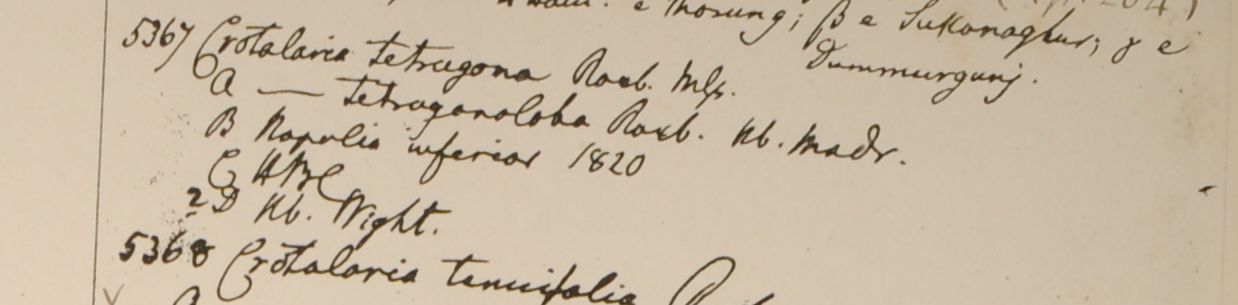 e Morung; β e Sukanaghur; γ e
Dummurgunj.
5367 Crotalaria tetragona Roxb. Mss.
A — tetragonoloba Roxb. Hb. Madr.
B Napalia inferior 1820
C HBC
?D Hb. Wight.
5368 Crotalaria tenuifolia